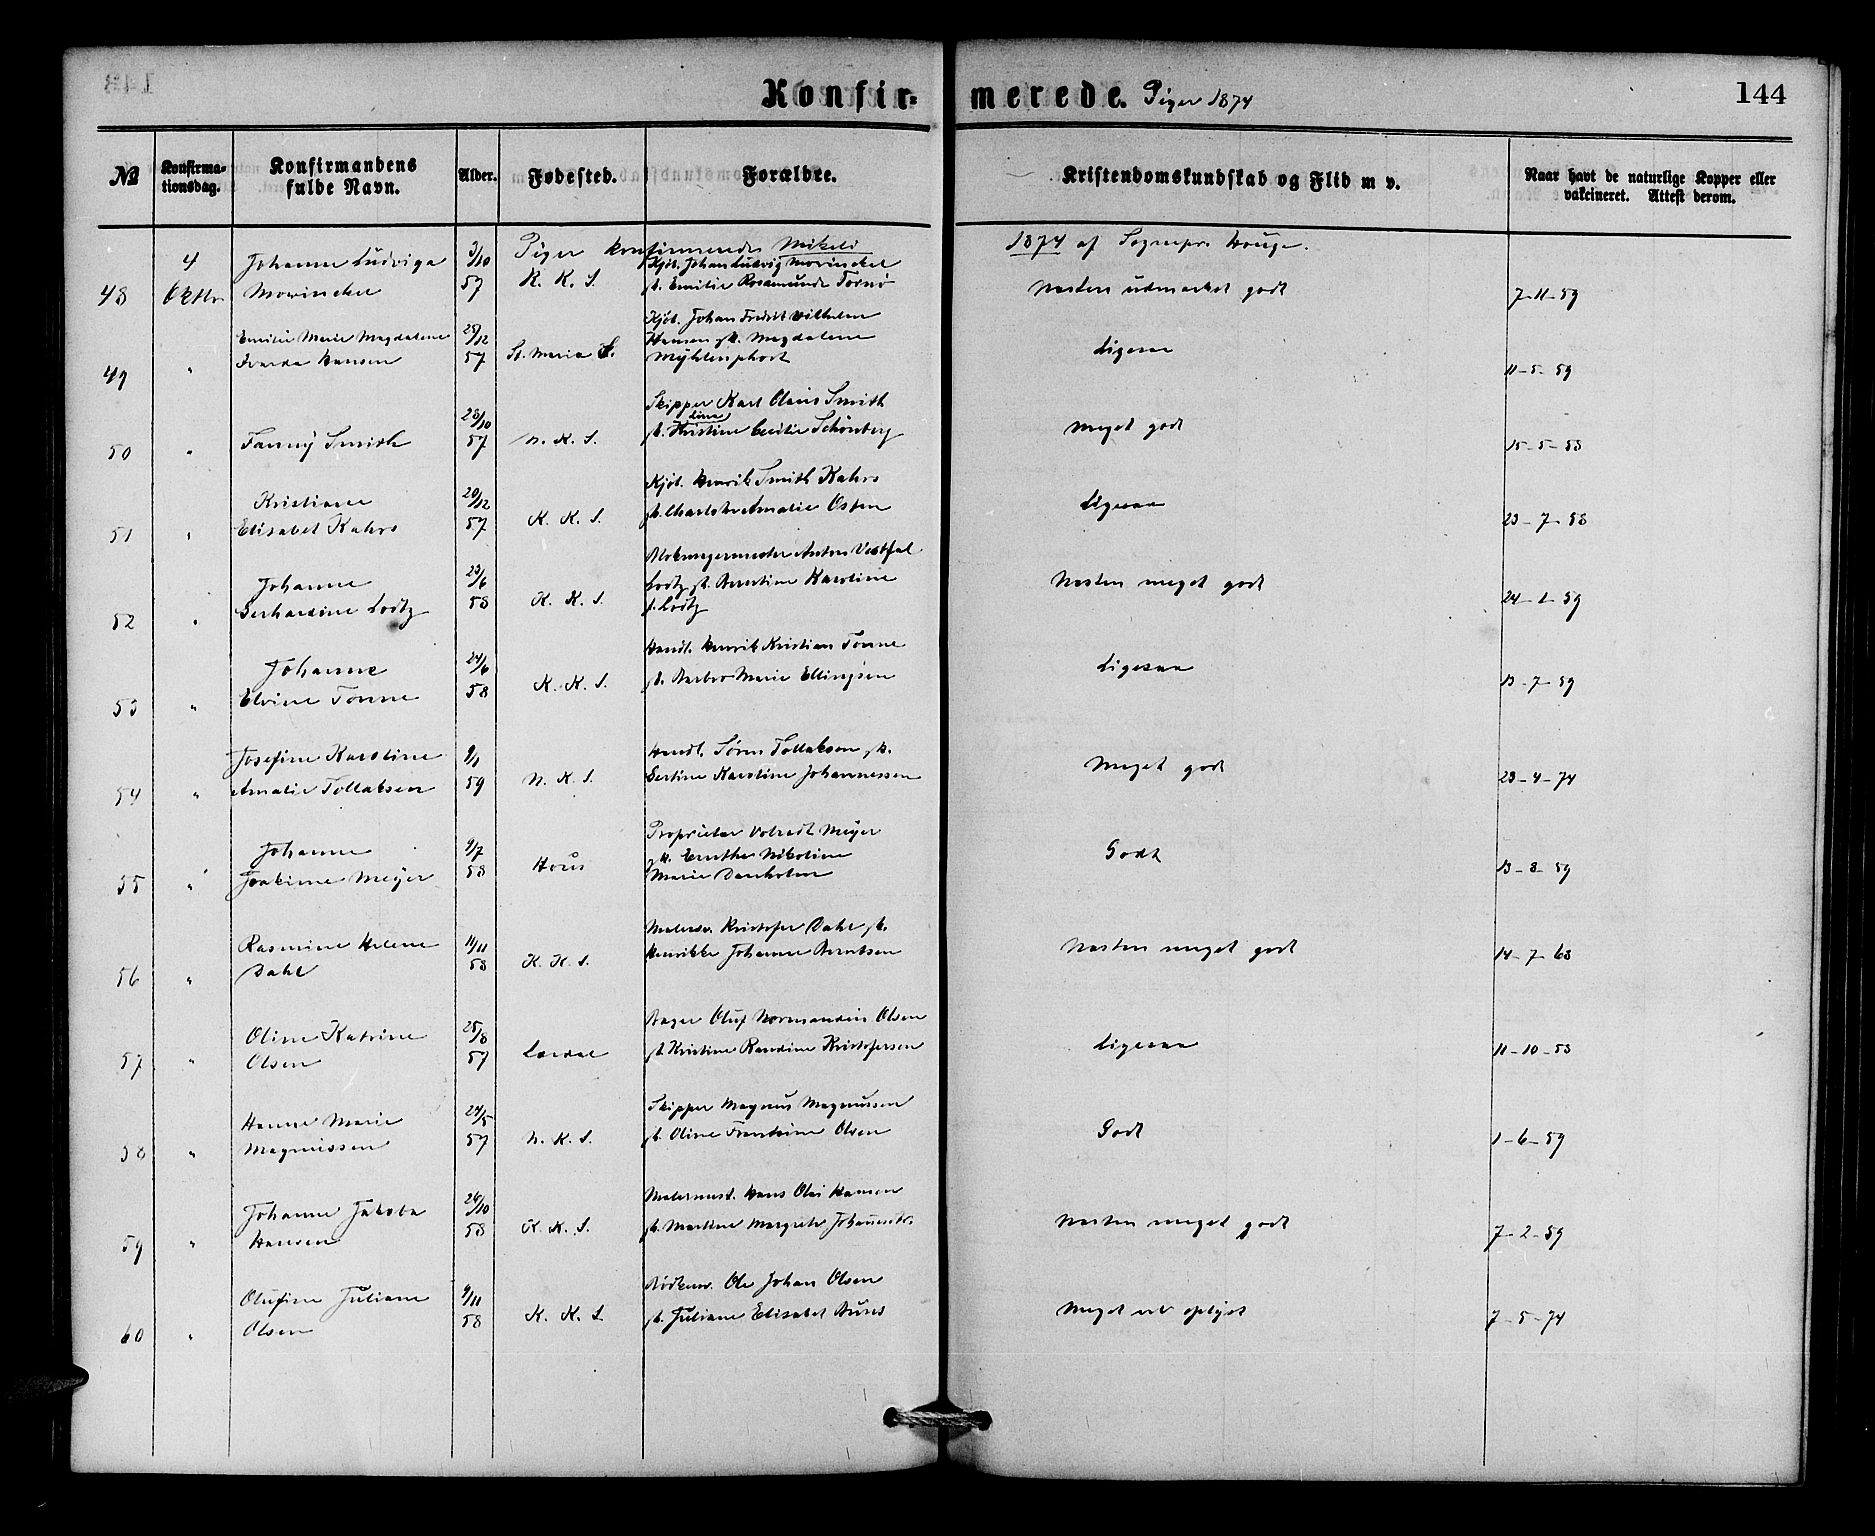 Konfir= merede. Piger 1874
144
№
Konfirma-
tionsdag.
Konfirmandens
fulde Navn.
Alder.
Fødested.
Forældre.
Kristendomskundskab og Flid m v.
Naar havt de naturlige Kopper eller
vakcineret. Attest derom.
Piger konfirmerede Mikeli 1874 af Sognepr. Houge.
48 4 Oktbr. Johanne Ludviga 3/10 57 K. K. S. Kjøb. Johan Ludvig Mowinckel Næsten udmærket godt 7-11-59
Mowinckel g. h. Emilie Rosamunde Tornø
49 " Emilie Marie Magdalene 29/12 57 St. Maria S. Kjøb. Johan Fredrik Vilhelm Ligesaa 11-5-59
Hansen g. h. Magdalene
Myhlenphort
50 " Fanny Smith 28/10 57 N. K. S. Skipper Karl Olaus Smith Meget godt 15-5-58
g. h. Kristine Cecilie Schönberg
51 " Kristiane 20/12 57 K. K. S. Kjøb. Henrik Smith Kahrs Ligesaa 23-7-58
Elisabet Kahrs g. h. Charlotte Amalie
52 " Johanne 23/6 58 K. K. S. Anton Næsten meget godt 24-1-59
Gerhardine Lodtz Lodtz g. h. Karoline
f. Lodtz
53 " Johanne 24/6 58 K. K. S. Handl. Henrik Kristian Tønne Ligesaa 13-7-59
Elvine Tønne g. h. Barbro Marie Ellingsen
54 " Josefine Karoline 9/1 59 N. K. S. Handl. Søren Tollaksen g. h. Meget godt 23-4-74
Amalie Tollaksen Gertine Karoline Johannessen
55 " Johanne 9/7 58 Hous Proprietær Volradt Meyer Godt 13-8-59
Joakime Meyer g. h. Nikoline
Marie Danholm
56 " Rasmine Helene 14/11 58 K. K. S. Malersv. Kristofer Dahl g. h. Næsten meget godt 14-7-63
Dahl Henrikke Johanne Berntsen
57 " Oline Katrine 25/8 57 Lærdal Bager Oluf Normandin Olsen Ligesaa 11-10-58
Olsen g. h. Kristine Randine Kristofersen
58 " Hanne Marie 24/5 57 N. K. S. Skipper Magnus Magnussen Godt 1-6-59
Magnussen g. h. Oline Olsen
59 " Johanne Jakoba 24/10 58 K. K. S. Malermest. Hans Olai Hansen Næsten meget godt 7-2-59
Hansen g. h. Martine Margrete
60 " Olufine Juliane 9/11 58 K. K. S. Bødkersv. Ole Johan Olsen Meget vel oplyst 7-5-74
Olsen g. h. Juliane Elisabet